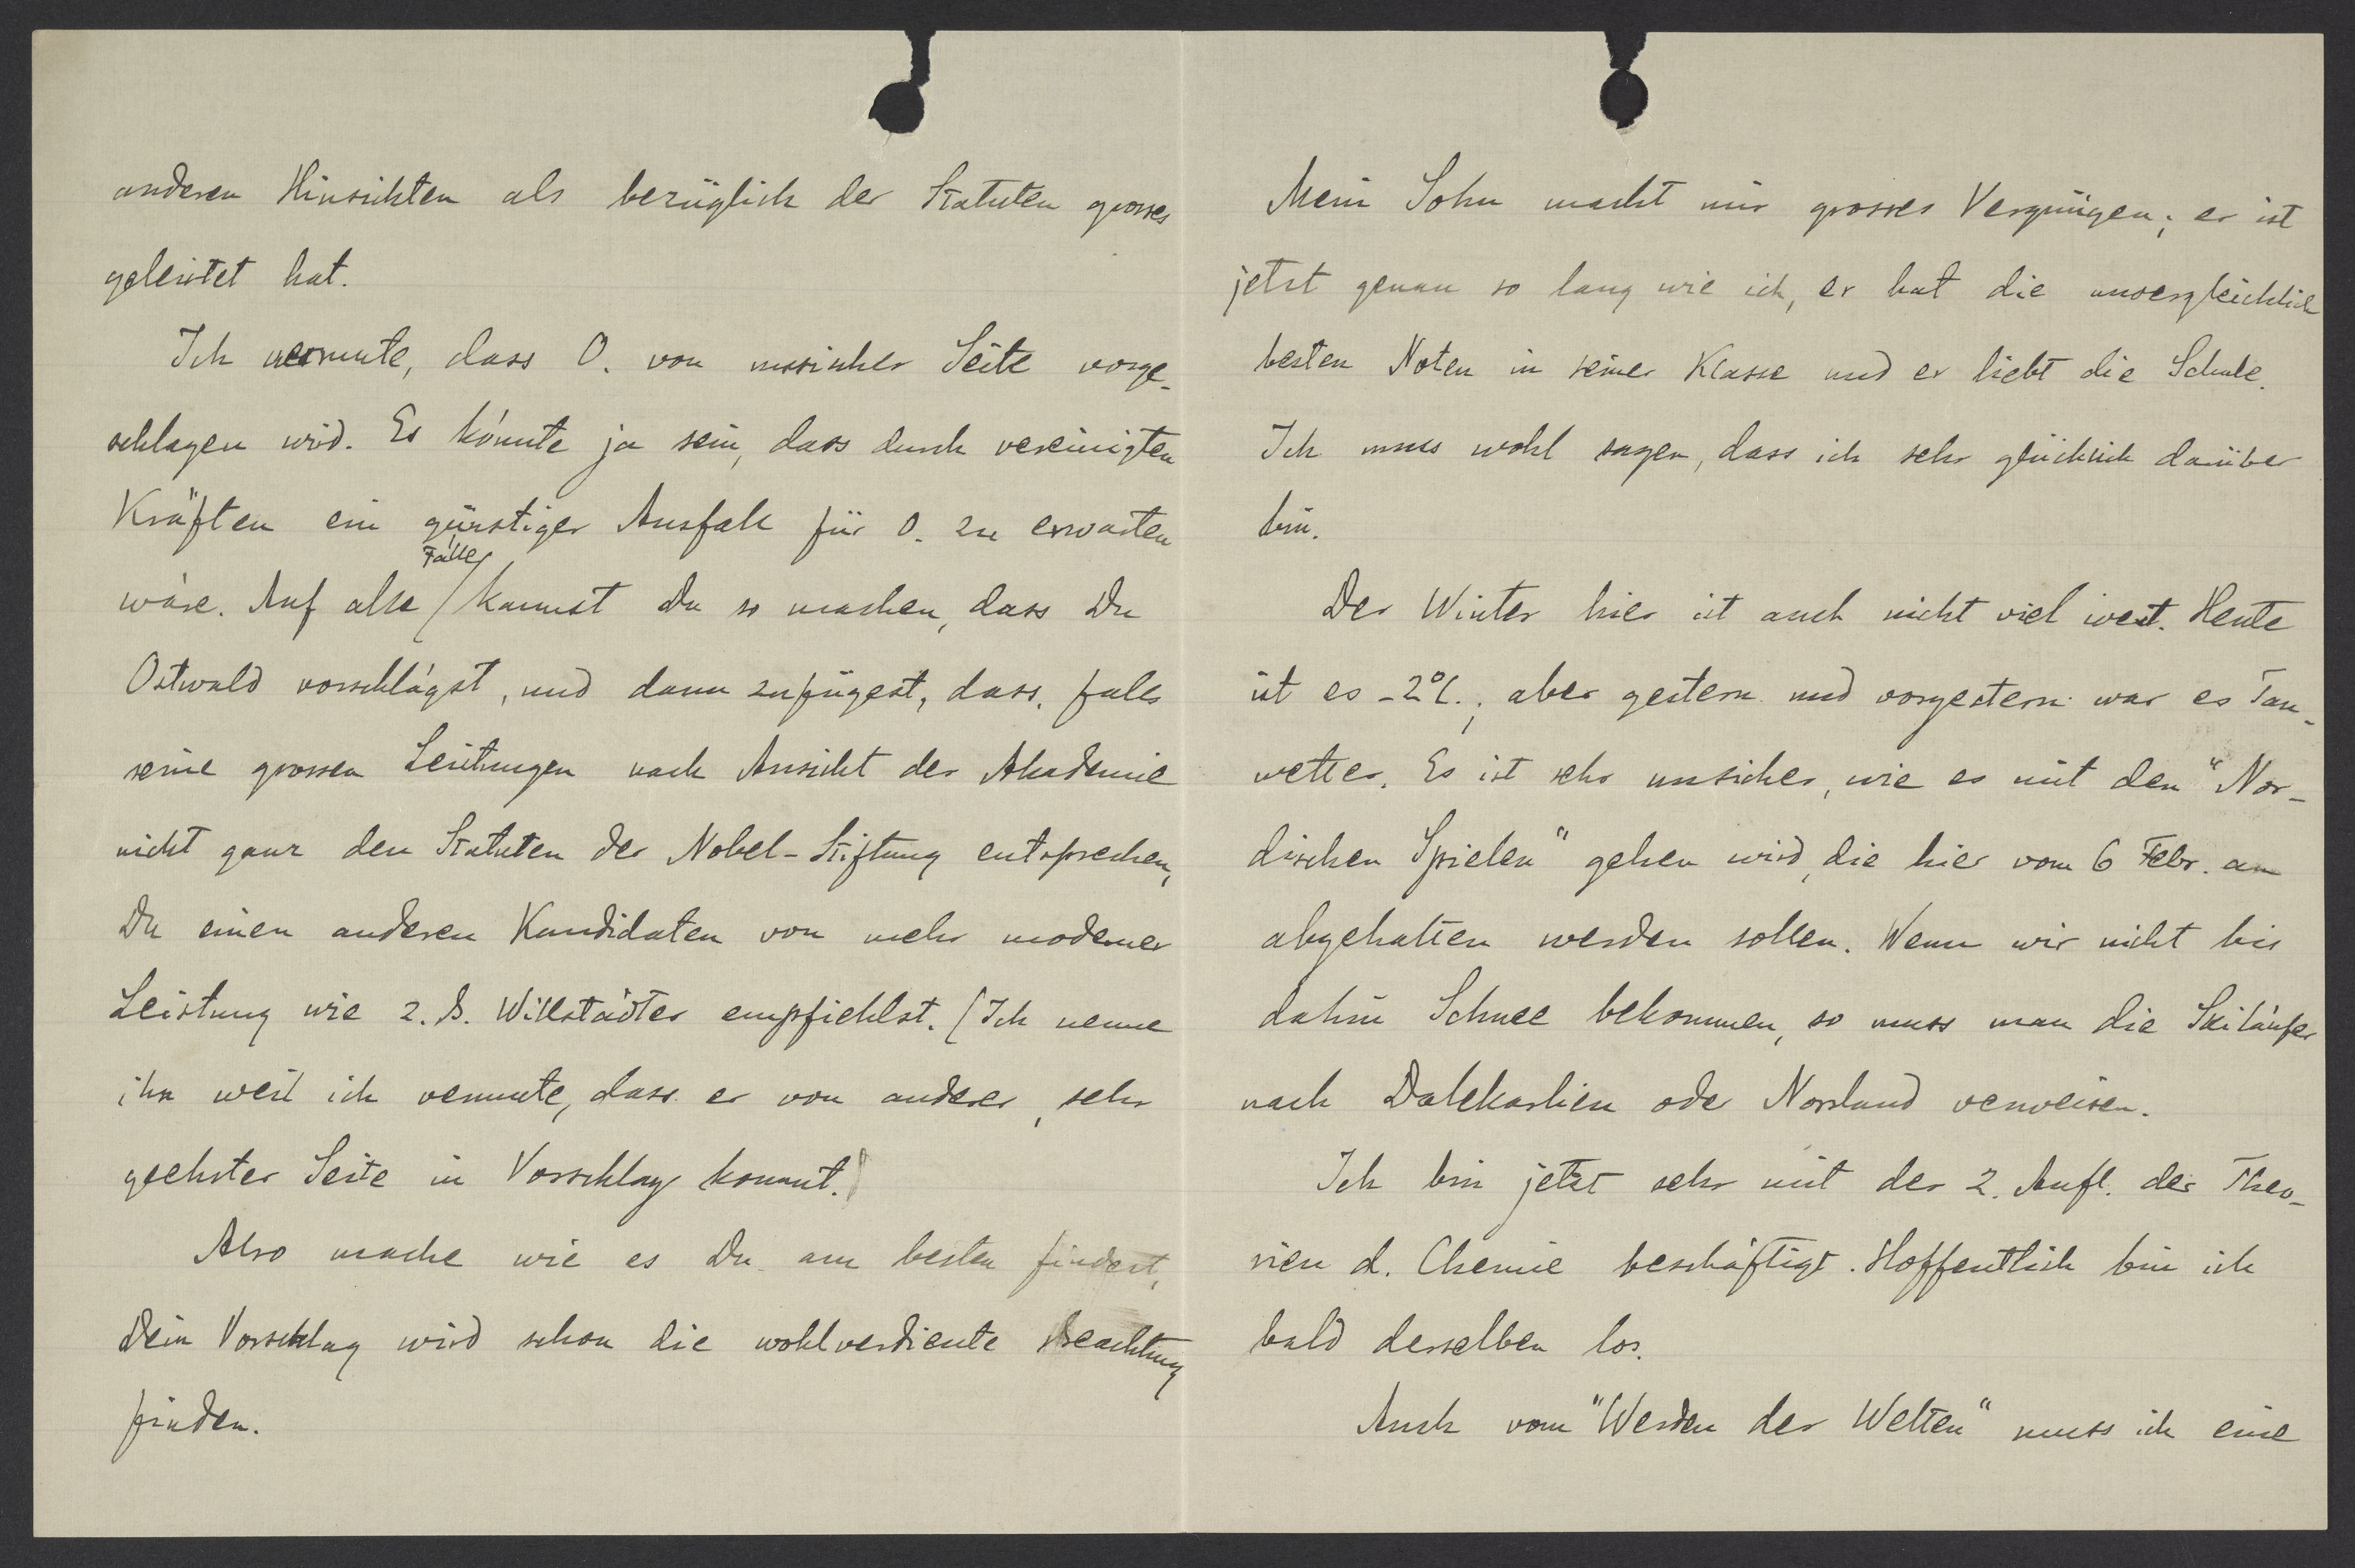 anderen Hinsichten als bezüglich der Statuten grosses
geleistet hat.
Ich vermute, dass O. von russischer Seite vorge-
schlagen wird. Es könnte ja sein, dass durch vereinigten
Kräften ein günstiger Ausfall für O. zu erwarten
wäre. Auf alle Fälle kannst Du so machen, dass Du
Ostwald vorschlägst, und dann zufügest, dass, falls
seine grossen Leistungen nach Ansicht der Akademie
nicht ganz den Statuten der Nobel-Stiftung entsprechen,
Du einen anderen Kandidaten von mehr moderner
Leistung wie z. B. Willstädter empfiehlst. (Ich nenne
ihn weil ich vermute, dass er von anderer, sehr
geehrter Seite in Vorschlag kommt.)
Also mache wie es Du am besten findest,
Dein Vorschlag wird schon die wohlverdiente Beachtung
finden.
Mein Sohn macht mir grosses Vergnügen; er ist
jetzt genau so lang wie ich, er hat die unvergleichlich
besten Noten in seiner Klasse und er liebt die Schule.
Ich muss wohl sagen, dass ich sehr glücklich darüber
bin.
Der Winter hier ist auch nicht viel wert. Heute
ist es -2°C.; aber gestern und vorgestern war es Tau-
wetter. Es ist sehr unsicher, wie es mit den "Nor-
dischen Spielen" gehen wird, die hier vom 6 Febr. an
abgehalten werden sollen. Wenn wir nicht bis
dahin Schnee bekommen, so muss man die Skiläufer
nach Dalekarlien oder Norrland verweisen.
Ich bin jetzt sehr mit der 2. Aufl. der Theo-
rien d. Chemie beschäftigt. Hoffentlich bin ich
bald derselben los.
Auch vom "Werden der Welten" muss ich eine